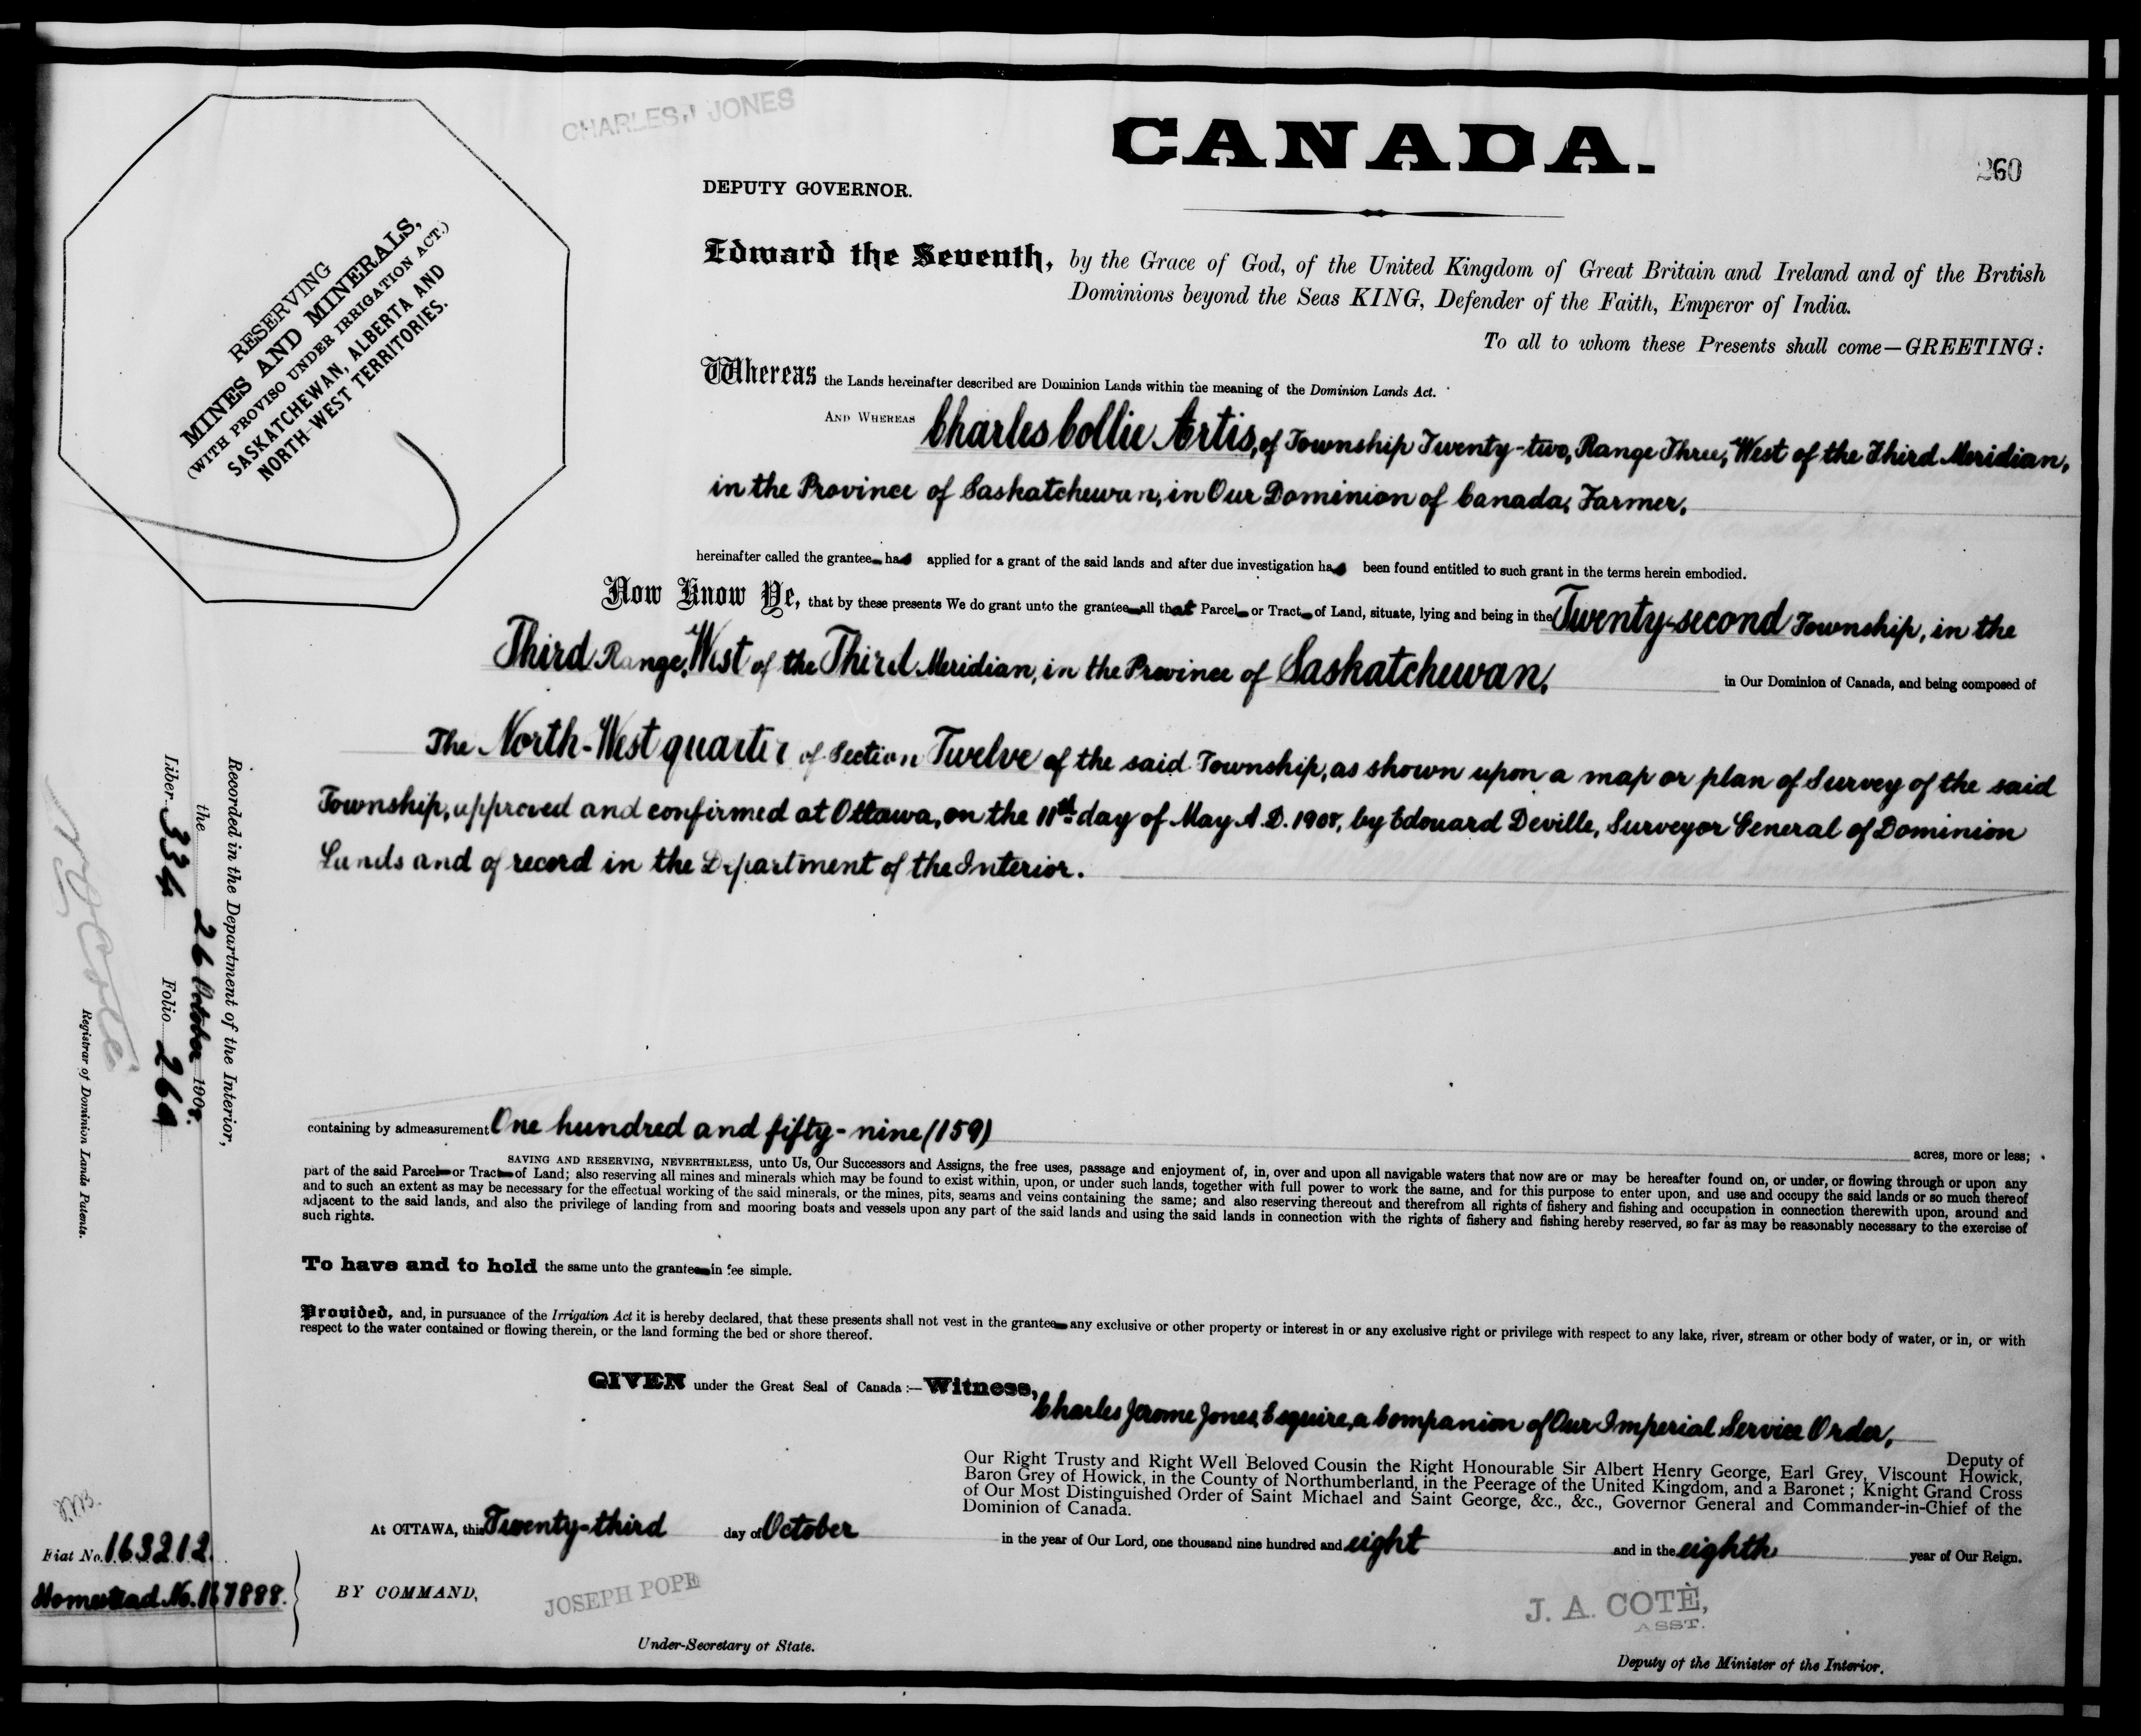 CHARLES J JONES
CANADA.
260
DEPUTY GOVERNOR.
RESERVING
MINES AND MINERALS,
(WITH PROVISO UNDER IRRIGATION ACT.)
SASKATCHEWAN, ALBERTA AND
NORTH-WEST TERRITORIES.
Edward the Seventh, by the Grace of God, of the United Kingdom of Great Britain and Ireland and of the British
Dominions beyond the Seas KING, Defender of the Faith, Emperor of India.
To all to whom these Presents shall come—GREETING:
Whereas the Lands hereinafter described are Dominion Lands within the meaning of the Dominion Lands Act.
AND WHEREAS Charles Collie Artis, of Township Twenty-two, Range Three, West of the Third Meridian,
in the Province of Saskatchewan, in Our Dominion of Canada, Farmer,
hereinafter called the grantee has applied for a grant of the said lands and after due investigation has been found entitled to such grant in the terms herein embodied.
Now Know Ye, that by these presents We do grant unto the grantee all that Parcel or Tract of Land, situate, lying and being in the Twenty-second Township, in the
Third Range, West of the Third Meridian, in the Province of Saskatchewan, in Our Dominion of Canada, and being composed of
The North-West quarter of Section Twelve of the said Township, as shown upon a map or plan of Survey of the said
Township, approved and confirmed at Ottawa, on the 11th day of May A.D. 1908, by Edouard Deville, Surveyor General of Dominion
Lands and of record in the Department of the Interior.
containing by admeasurement One hundred and fifty-nine (159) acres, more or less;
SAVING AND RESERVING, NEVERTHELESS, unto Us, Our Successors and Assigns, the free uses, passage and enjoyment of, in, over and upon all navigable waters that now are or may be hereafter found on, or under, or flowing through or upon any
part of the said Parcel or Tract of Land; also reserving all mines and minerals which may be found to exist within, upon, or under such lands, together with full power to work the same, and for this purpose to enter upon, and use and occupy the said lands or so much thereof
and to such an extent as may be necessary for the effectual working of the said minerals, or the mines, pits, seams and veins containing the same; and also reserving thereout and therefrom all rights of fishery and fishing and occupation in connection therewith upon, around and
adjacent to the said lands, and also the privilege of landing from and mooring boats and vessels upon any part of the said lands and using the said lands in connection with the rights of fishery and fishing hereby reserved, so far as may be reasonably necessary to the exercise of
such rights.
To have and to hold the same unto the grantee in fee simple.
Provided, and, in pursuance of the Irrigation Act it is hereby declared, that these presents shall not vest in the grantee any exclusive or other property or interest in or any exclusive right or privilege with respect to any lake, river, stream or other body of water, or in, or with
respect to the water contained or flowing therein, or the land forming the bed or shore thereof.
GIVEN under the Great Seal of Canada:—Witness,
Charles Jerome Jones, Esquire, a Companion of Our Imperial Service Order,
Deputy of
Our Right Trusty and Right Well Beloved Cousin the Right Honourable Sir Albert Henry George, Earl Grey, Viscount Howick,
Baron Grey of Howick, in the County of Northumberland, in the Peerage of the United Kingdom, and a Baronet; Knight Grand Cross
of Our Most Distinguished Order of Saint Michael and Saint George, &c., &c., Governor General and Commander-in-Chief of the
Dominion of Canada.
At OTTAWA, this Twenty-third day of October in the year of Our Lord, one thousand nine hundred and eight and in the eighth year of Our Reign.
BY COMMAND,
JOSEPH POPE
Under-Secretary of State.
J. A. COTÈ,
ASST.
Deputy of the Minister of the Interior.
Recorded in the Department of the Interior,
the 26 October 1908.
Liber 334 Folio 260
Registrar of Dominion Lands Patents.
Fiat No. 163212
Homestead No. 167888.